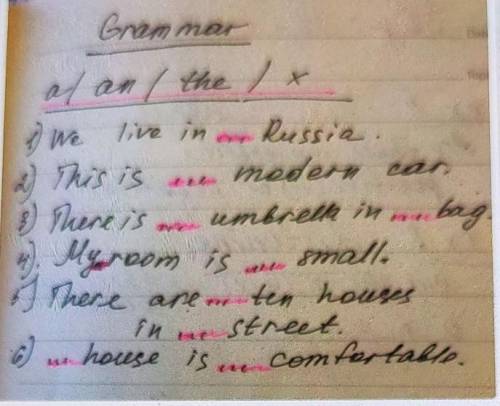 Grammar
a/ an/ the / x
1) We live in ... Russia.
2) This is ... modern car.
3) There is ... umbrella in ... bag.
4). My room is ... small.
5) There are ... ten houses
in ... street.
6) ... house is ... comfortable.